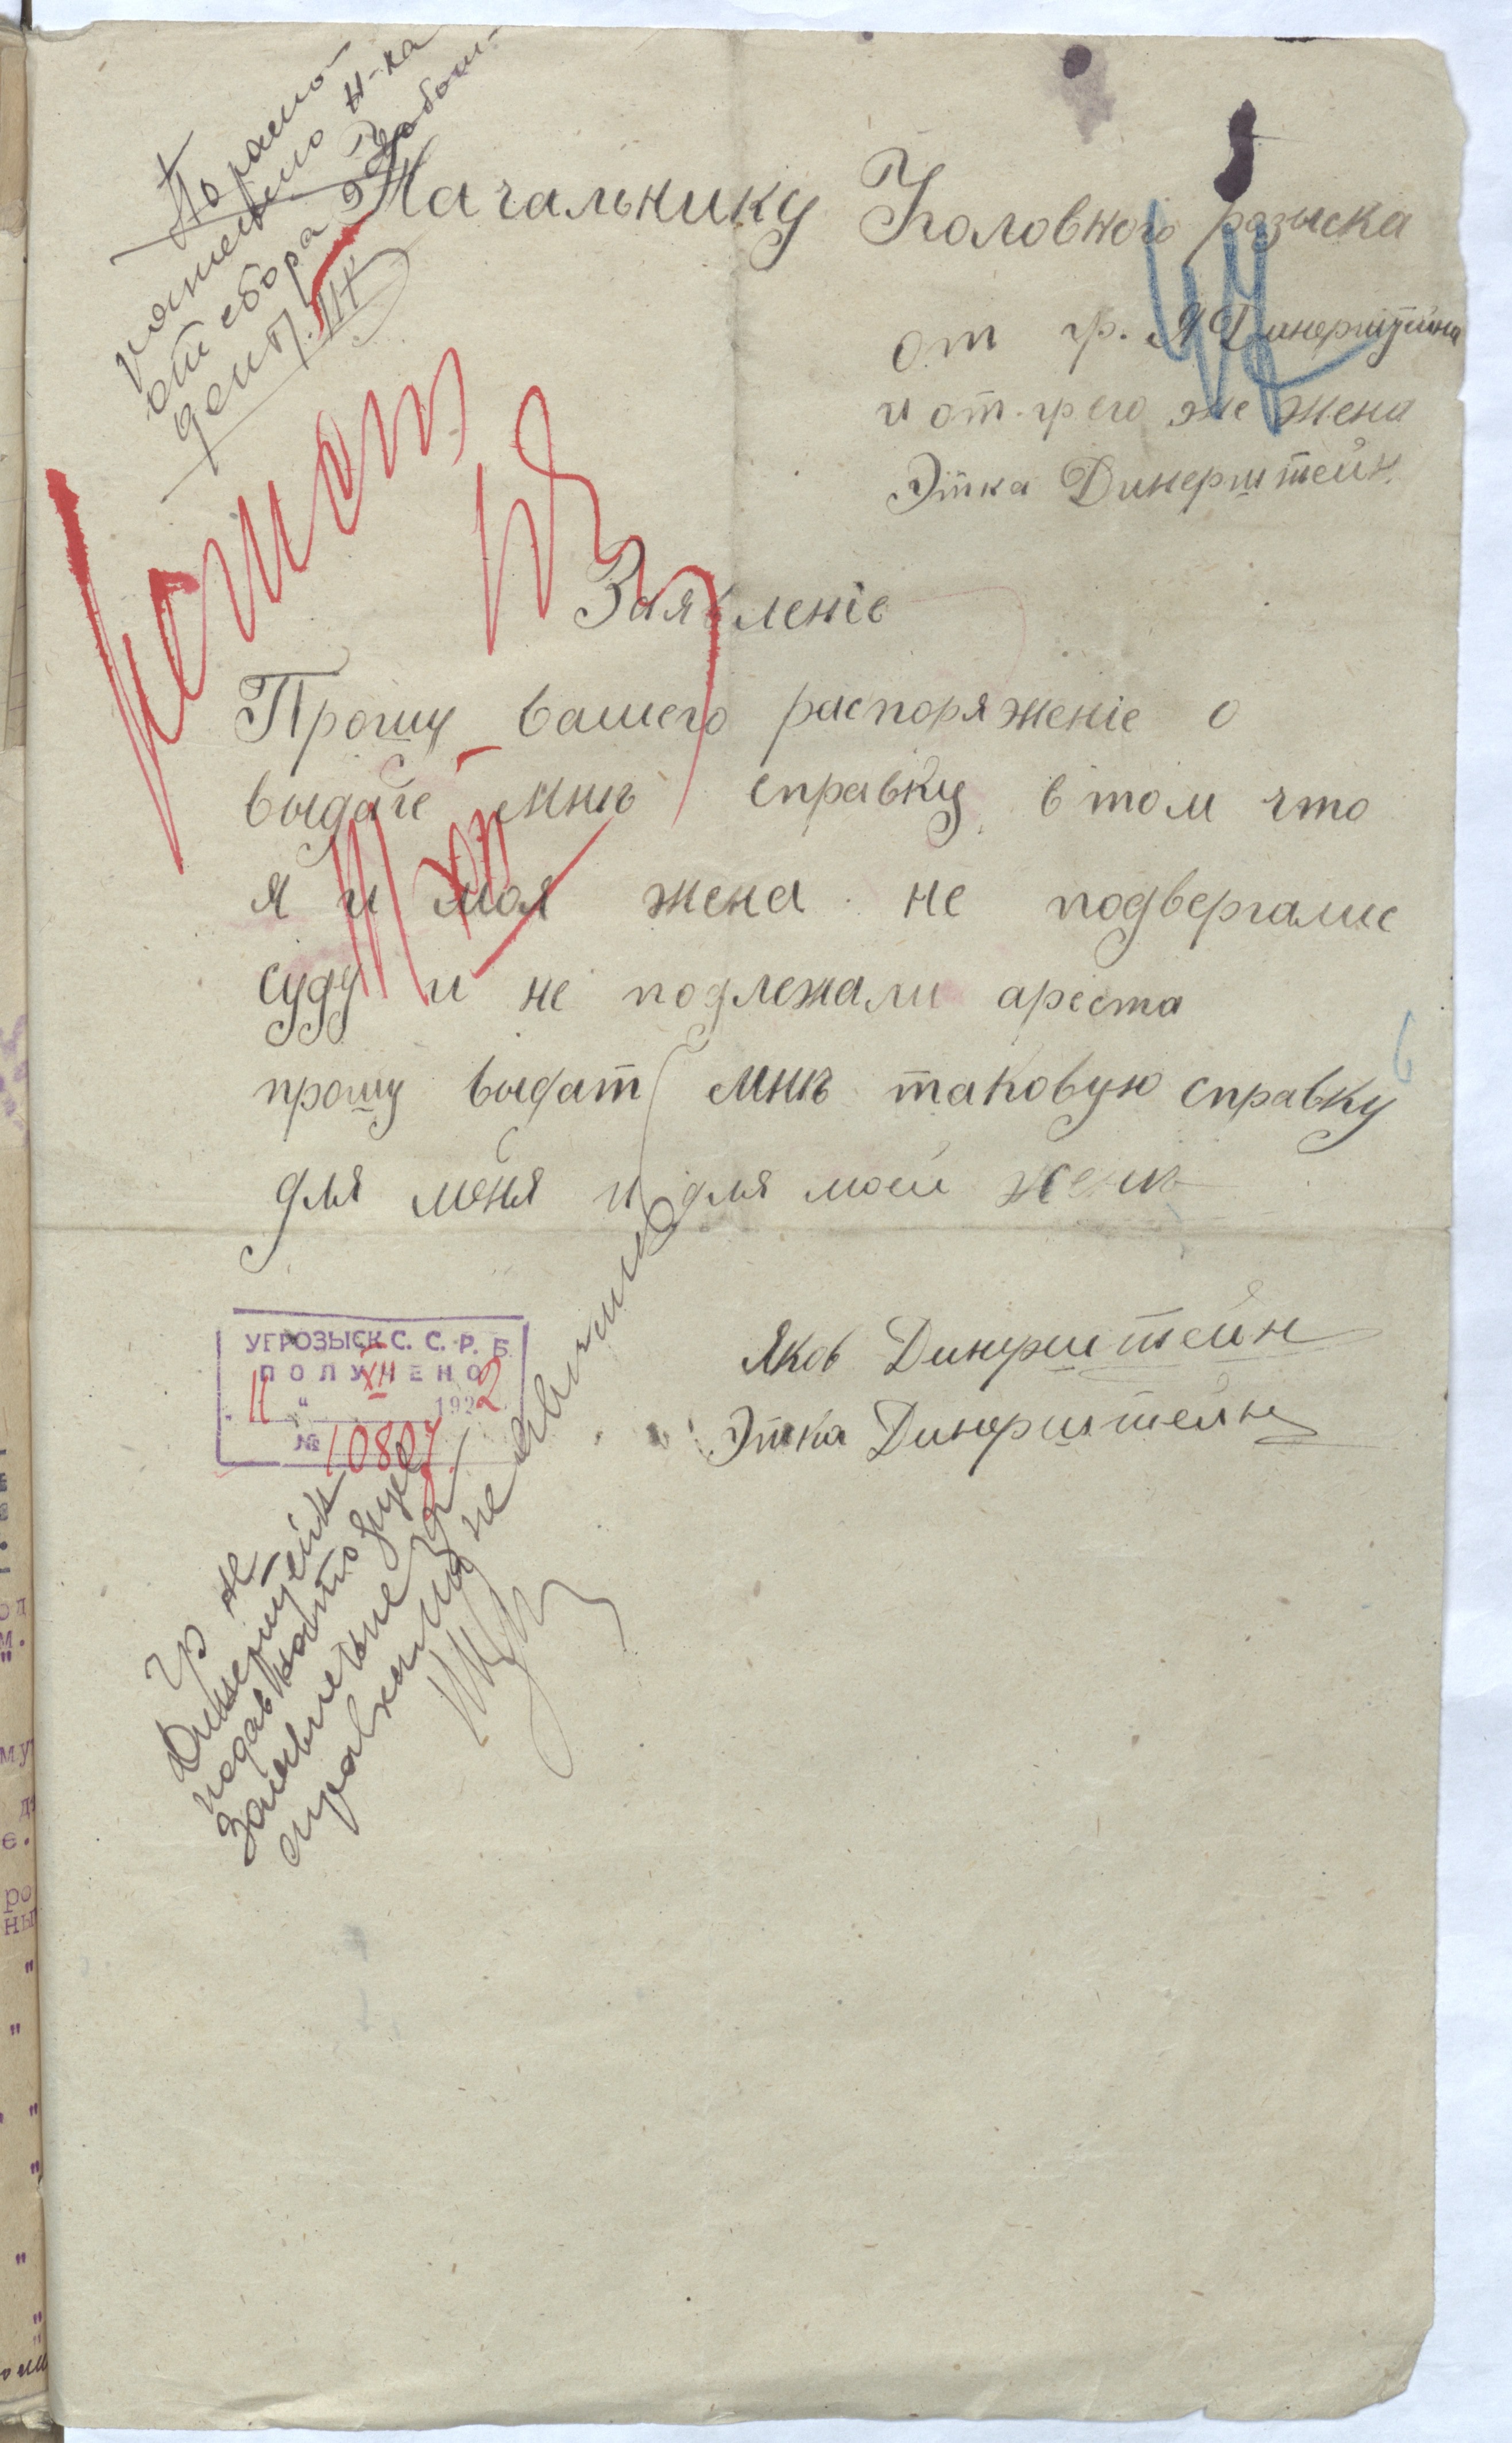 По распо-
ряжению Н-ка
от сбора
Начальнику Уголовного розыска
от гр. Я Динерштейна
и от. гр его же жена
Этка Динерштейн
Заявленіе
Прошу вашего распоряженіе о
выдаче мнѣ справку в том что
я и моя жена не подвергалис
суду и не подлежали ареста
прошу выдат мнѣ таковую справку
для меня и для моей женѣ
Яков Динерштейн
Этка Динерштейн
УГРОЗЫСК С. С. Р. Б.
ПОЛУЧЕНО
11 " XII 1922
№ 10807
Гр-н
Динерштейн
подав настоящее
Заявление за
справками не явились